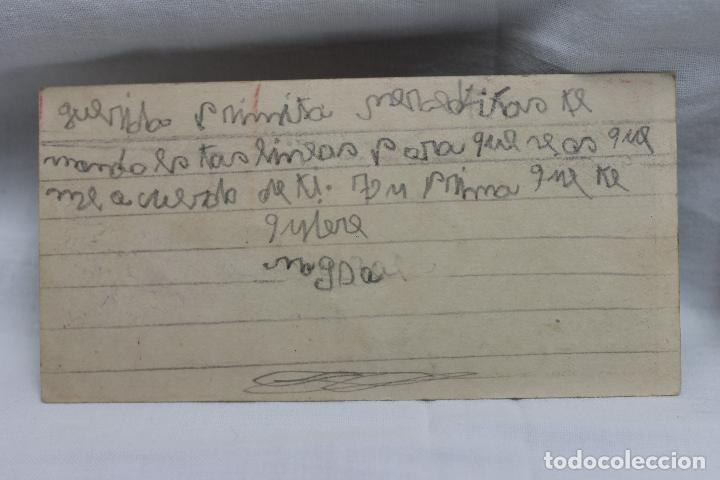 querida primita merceditas te
mando estas lineas para que veas que
me acuerdo de ti. Tu prima que te
quiere
magda
todocoleccion.net